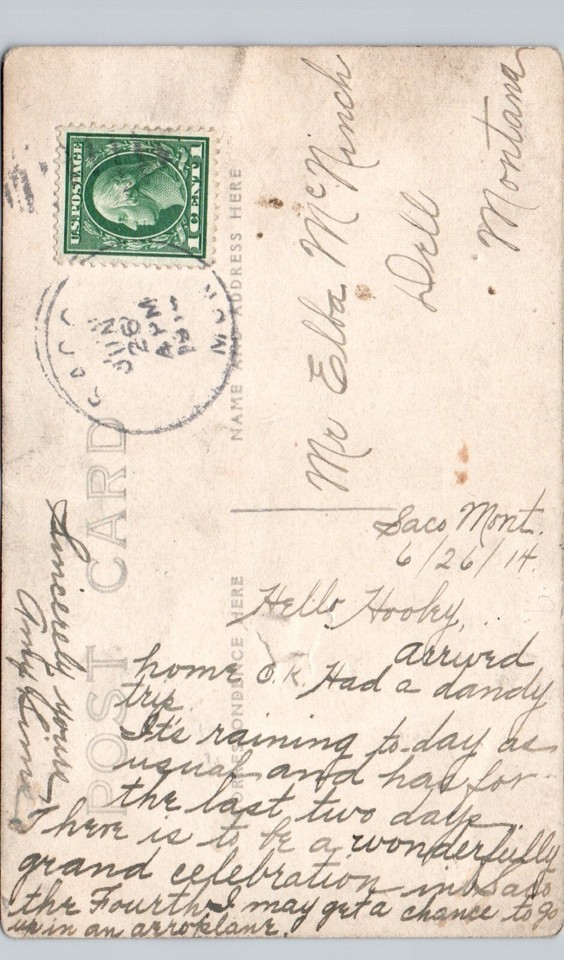 U.S. POSTAGE
1 CENT 1
JUN
26
POST CARD
NAME AND ADDRESS HERE
Mr Elba McNinch
Dell
Montana
Saco Mont.
6/26/14.
Hello Hooky,
arrived
home O.K. Had a dandy
trip.
It's raining to-day as
usual and has for
the last two days.
There is to be a wonderfully
grand celebration in Saco
the Fourth. I may get a chance to go
up in an aeroplane.
Sincerely yours